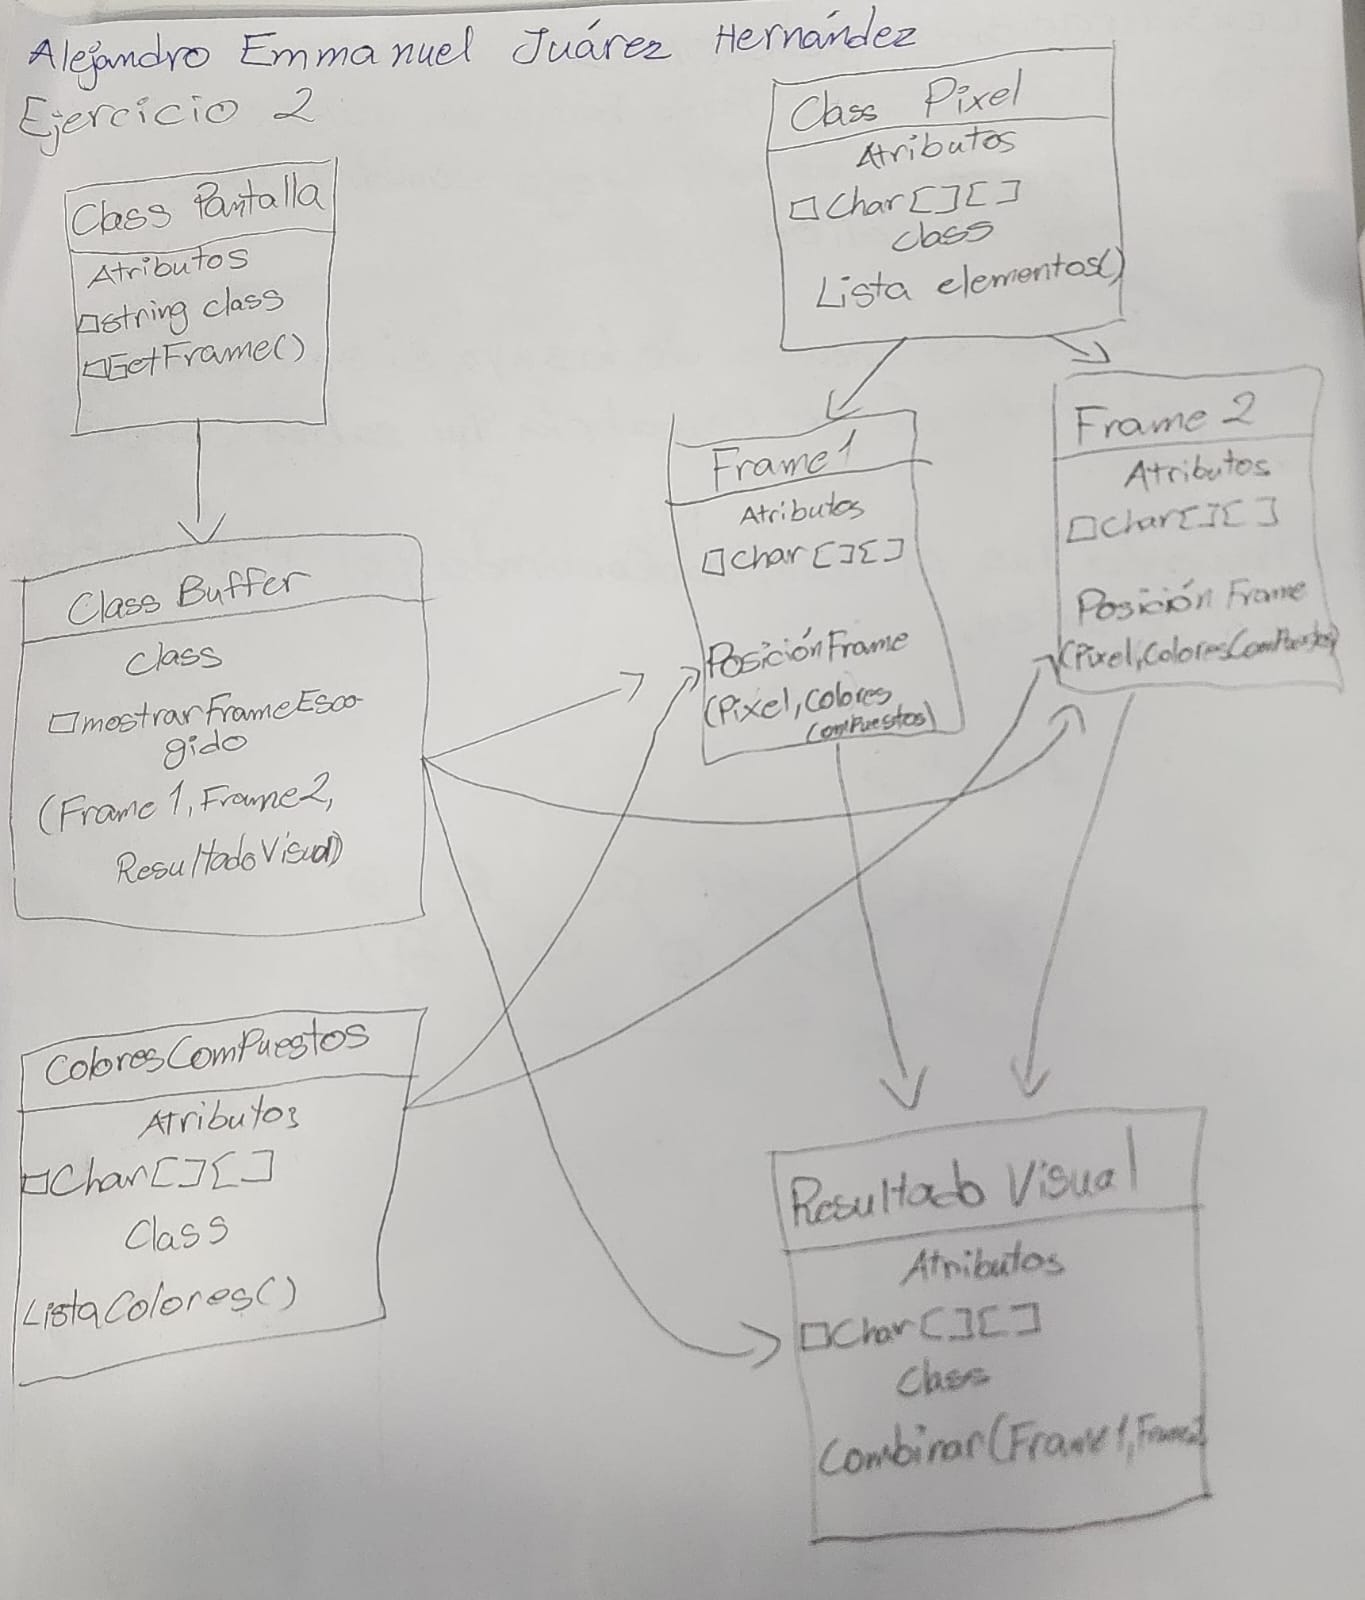 Alejandro Emmanuel Juárez Hernández
Ejercicio 2
Class Pantalla
Atributos
string class
GetFrame()
Class Pixel
Atributos
Char[][]
class
Lista elementos()
Frame 1
Atributos
char[][]
Posición Frame
(Pixel, Colores
Compuestos)
Frame 2
Atributos
char[][]
Posición Frame
(Pixel, ColoresCompuestos)
Class Buffer
class
mostrarFrameEsco-
gido
(Frame 1, Frame 2,
Resultado Visual)
ColoresCompuestos
Atributos
Char[][]
Class
ListaColores()
Resultado Visual
Atributos
Char[][]
Class
Combinar(Frame 1, Frame2)